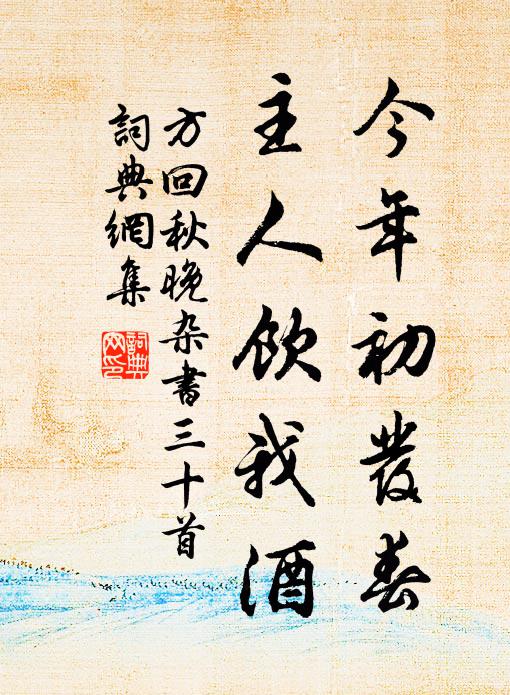 今年初發春
主人飲我酒
方回秋晚杂書三十首
詞典網集
詞典